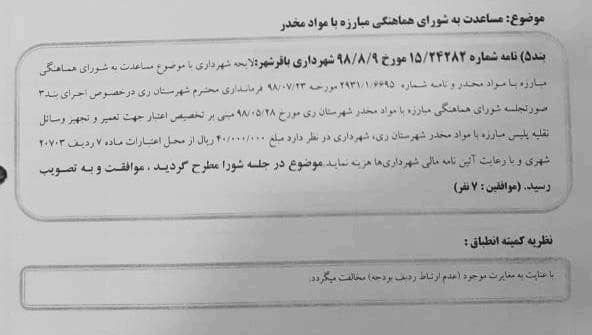 موضوع: مساعدت به شورای هماهنگی مبارزه با مواد مخدر
بند۵) نامه شماره ۱۵/۲۴۲۸۲ مورخ ۹۸/۸/۹ شهرداری باقرشهر:لایحه شهرداری با موضوع مساعدت به شورای هماهنگی
مبارزه با مواد مخدر و نامه شماره ۲۹۳۱/۱/۶۶۹۵ مورخه ۹۸/۰۷/۲۳ فرمانداری محترم شهرستان ری درخصوص اجرای بند۳
صورتجلسه شورای هماهنگی مبارزه با مواد مخدر شهرستان ری مورخ ۹۸/۰۵/۲۸ مبنی بر تخصیص اعتبار جهت تعمیر و تجهیز وسائل
نقلیه پلیس مبارزه با مواد مخدر شهرستان ری، شهرداری در نظر دارد مبلغ ۴۰/۰۰۰/۰۰۰ ریال از محل اعتبارات ماده ۷ ردیف ۲۰۷۰۳
شهری و با رعایت آئین نامه مالی شهرداری‌ها هزینه نماید.موضوع در جلسه شورا مطرح گردید ، موافقت و به تصویب
رسید. (موافقین : ۷ نفر)
نظریه کمیته انطباق :
با عنایت به مغایرت موجود (عدم ارتباط ردیف بودجه) مخالفت میگردد.